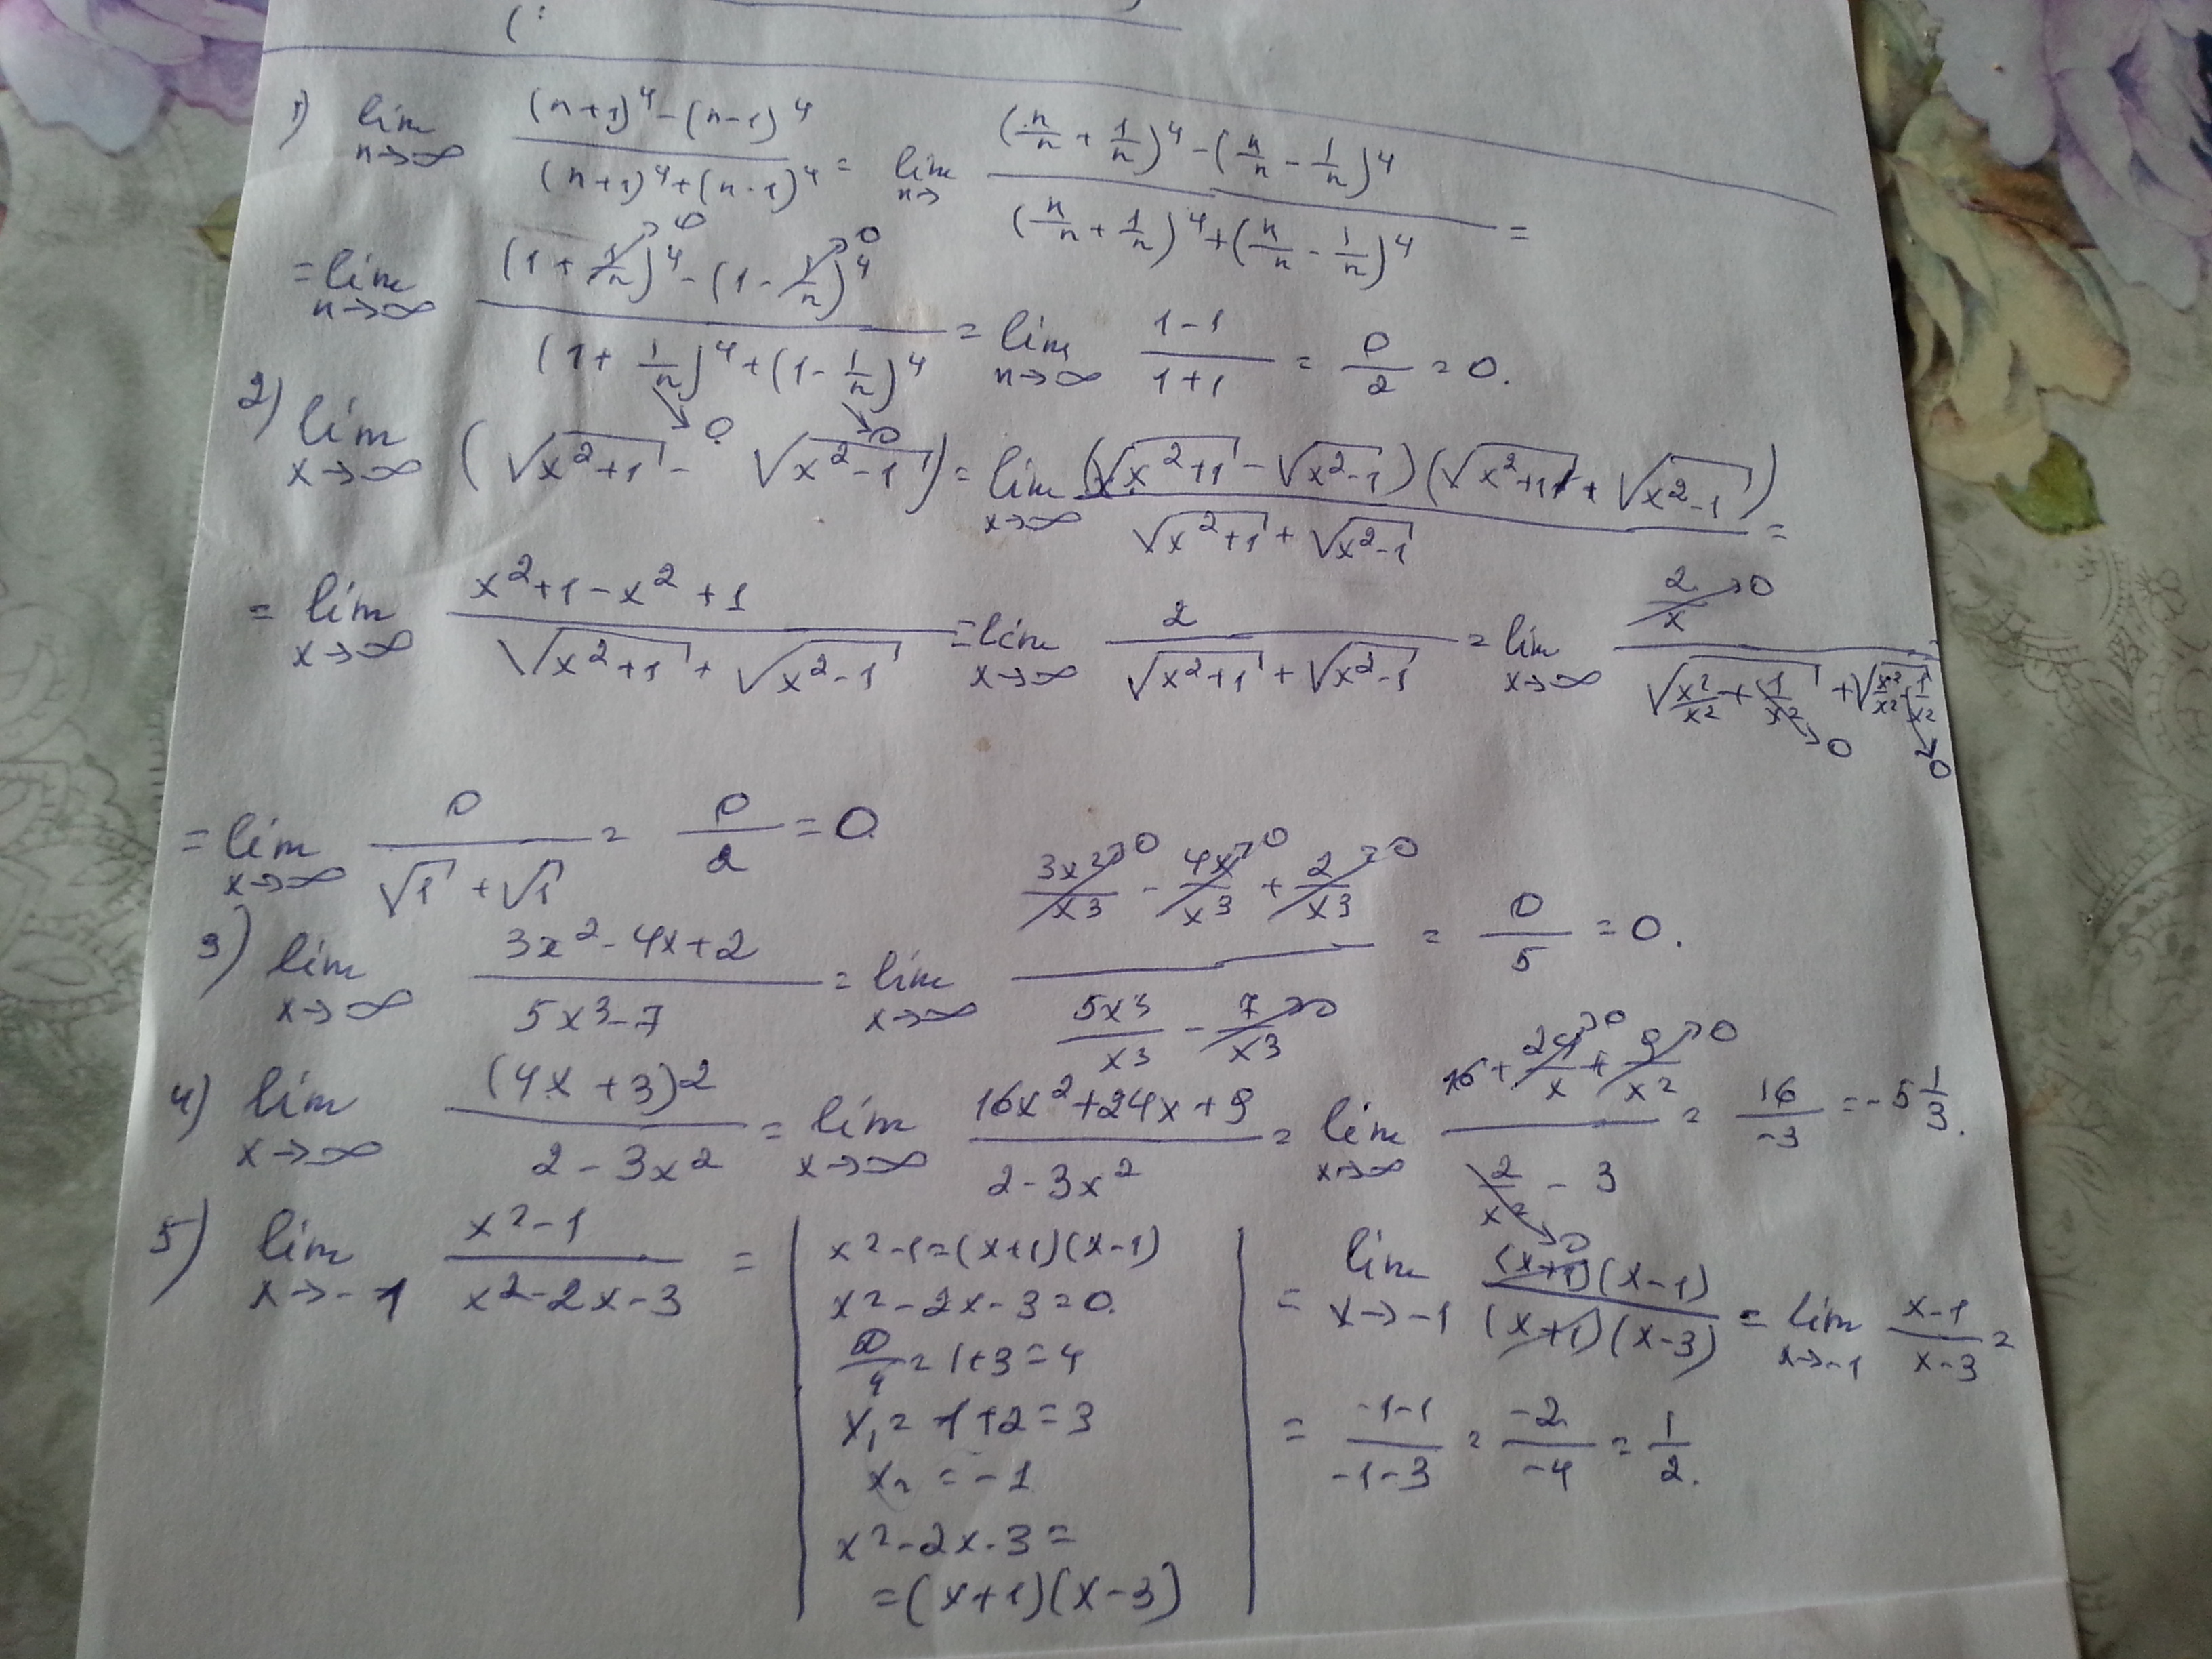 1) lim n→∞ ((n+1)^4-(n-1)^4)/((n+1)^4+(n-1)^4) = lim n→ ((n/n + 1/n)^4-(n/n - 1/n)^4)/((n/n + 1/n)^4+(n/n - 1/n)^4) =
= lim n→∞ ((1+1/n→0)^4-(1-1/n→0)^4)/((1+1/n→0)^4+(1-1/n→0)^4) = lim n→∞ (1-1)/(1+1) = 0/2 = 0.
2) lim x→∞ (√(x²+1) - √(x²-1)) = lim x→∞ ((√(x²+1) - √(x²-1))(√(x²+1) + √(x²-1)))/(√(x²+1) + √(x²-1)) =
= lim x→∞ (x²+1-x²+1)/(√(x²+1) + √(x²-1)) = lim x→∞ 2/(√(x²+1) + √(x²-1)) = lim x→∞ (2/x→0)/(√(x²/x² + 1/x²→0) + √(x²/x² - 1/x²→0)) =
= lim x→∞ 0/(√1 + √1) = 0/2 = 0.
3) lim x→∞ (3x²-4x+2)/(5x³-7) = lim x→∞ (3x²/x³→0 - 4x/x³→0 + 2/x³→0)/(5x³/x³ - 7/x³→0) = 0/5 = 0.
4) lim x→∞ (4x+3)²/(2-3x²) = lim x→∞ (16x²+24x+9)/(2-3x²) = lim x→∞ (16+24/x→0+9/x²→0)/(2/x²→0 - 3) = 16/-3 = -5 1/3.
5) lim x→-1 (x²-1)/(x²-2x-3) = | x²-1=(x+1)(x-1) | = lim x→-1 ((x+1)(x-1))/((x+1)(x-3)) = lim x→-1 (x-1)/(x-3) =
x²-2x-3=0.
D/4 = 1+3=4
x₁ = 1+2=3
x₂ = -1
x²-2x-3=
=(x+1)(x-3)
= (-1-1)/(-1-3) = -2/-4 = 1/2.